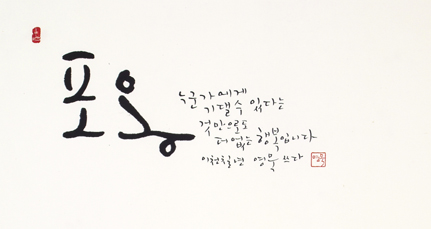 포옹
누군가에게
기댈 수 있다는
것만으로도
더없는 행복입니다
이천칠년 영묵 쓰다